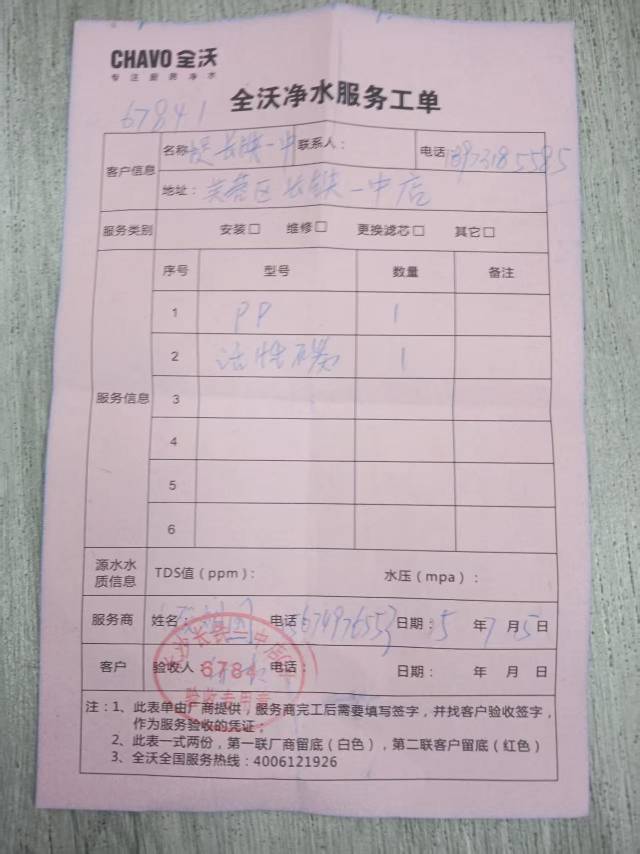 CHAVO 全沃
专注厨房净水
全沃净水服务工单
67841
客户信息
名称 长铁一中 联系人： 电话
地址：芙蓉区长铁一中店
服务类别 安装□ 维修□ 更换滤芯□ 其它□
服务信息
序号 型号 数量 备注
1 PP 1
2 活性碳 1
3
4
5
6
源水水质信息 TDS值（ppm）： 水压（mpa）：
服务商 姓名： 电话 日期：5 年 7 月 15 日
客户 验收人 6784 电话： 日期： 年 月 日
验收专用章
注：1、此表单由厂商提供，服务商完工后需要填写签字，并找客户验收签字，
作为服务验收的凭证；
2、此表一式两份，第一联厂商留底（白色），第二联客户留底（红色）
3、全沃全国服务热线：4006121926